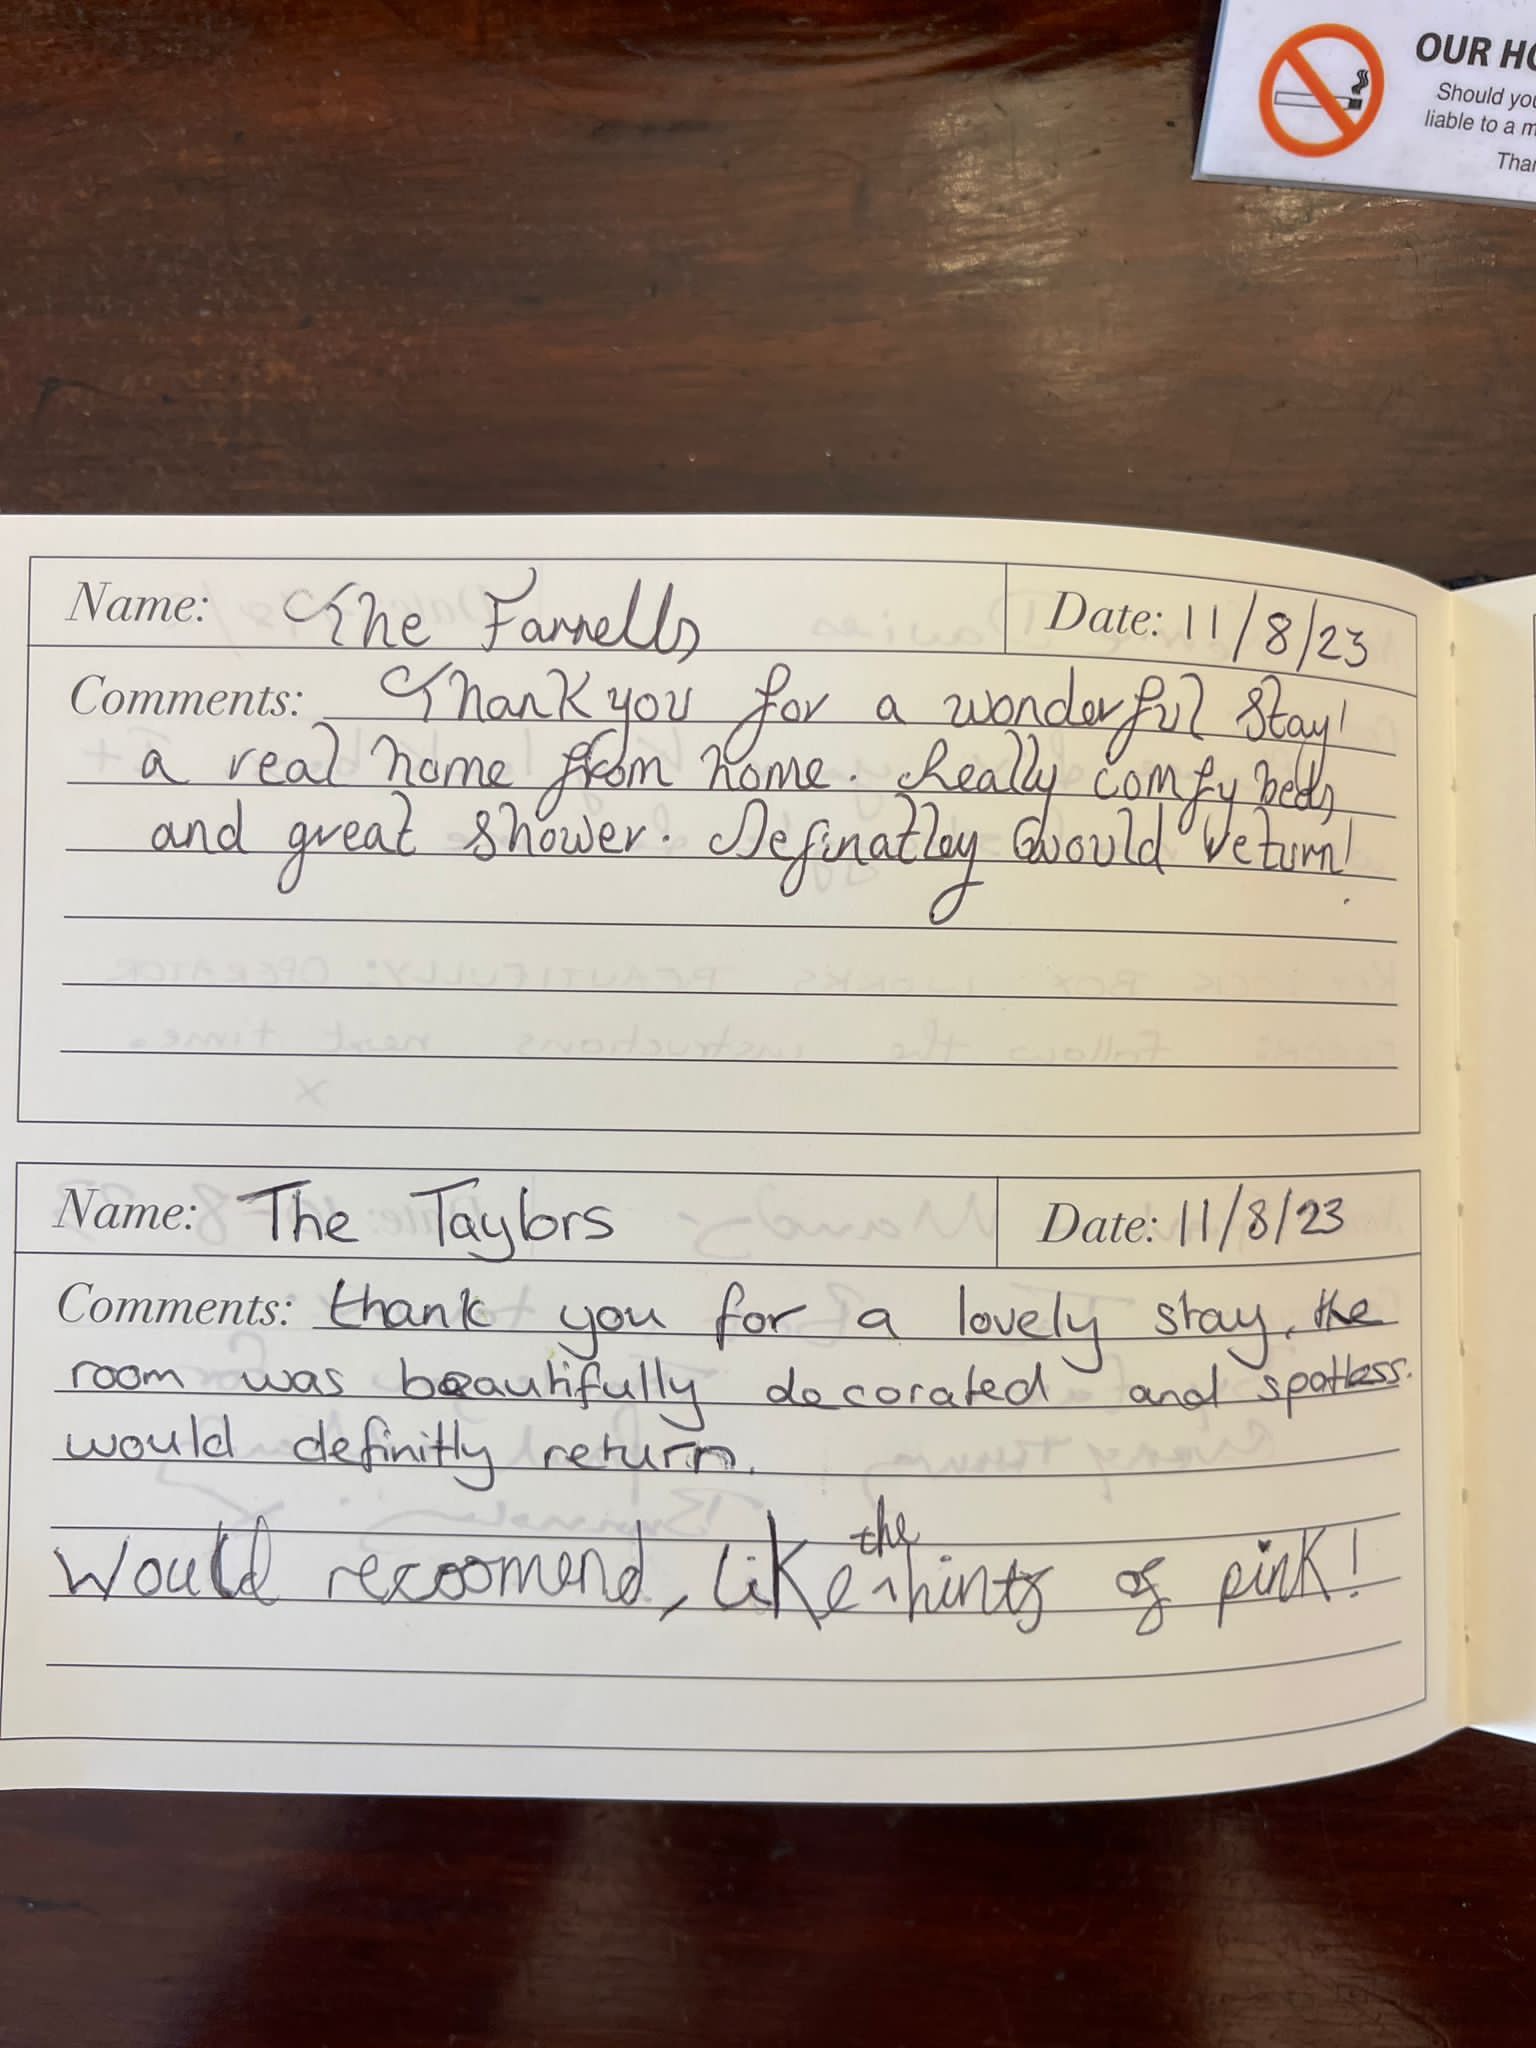 OUR HO
Should you
liable to a m
Than
Name: The Farrells
Date: 11/8/23
Comments: Thank you for a wonderful stay!
a real home from home. Really comfy beds
and great shower. Definatley would return!
Name: The Taylors
Date: 11/8/23
Comments: thank you for a lovely stay, the
room was beautifully decorated and spotless.
would definitly return.
Would recoomend, like the hints of pink!